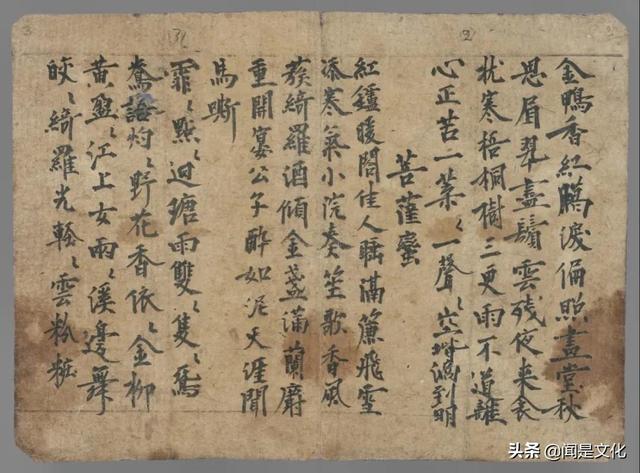 金鴨香紅臈淚偏照畫堂秋
思眉翠盡鬢雲殘夜來衾
枕寒梧桐樹三更雨不道離
心正苦一葉〻一聲〻空堦滴到明
菩薩蜜
紅鑪暖閤佳人睡滿簾飛雪
添寒氣小院奏笙歌香風
蔟綺羅酒傾金盞滿蘭麝
重開宴公子醉如泥天涯聞
馬嘶
霏〻點〻迴塘雨雙〻隻〻鴛
鴦語灼〻野花香依〻金柳
黃盈〻江上女兩〻溪邊舞
皎〻綺羅光輕〻雲粉粧
2
头条 @闻是文化